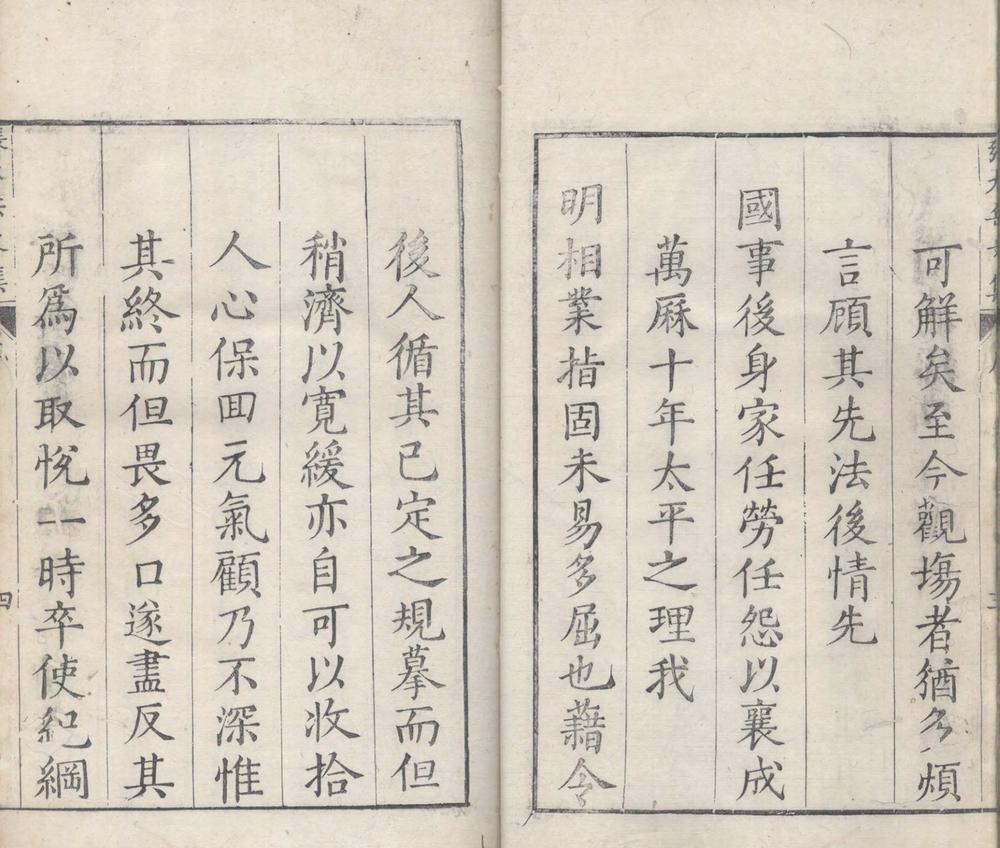 可解矣至今觀塲者猶多煩
言顧其先法後情先
國事後身家任勞任怨以襄成
萬厤十年太平之理我
明相業指固未易多屈也藉令
後人循其已定之規摹而但
稍濟以寛緩亦自可以收拾
人心保囬元氣顧乃不深惟
其終而但畏多口遂盡反其
所爲以取悅一時卒使紀綱
四